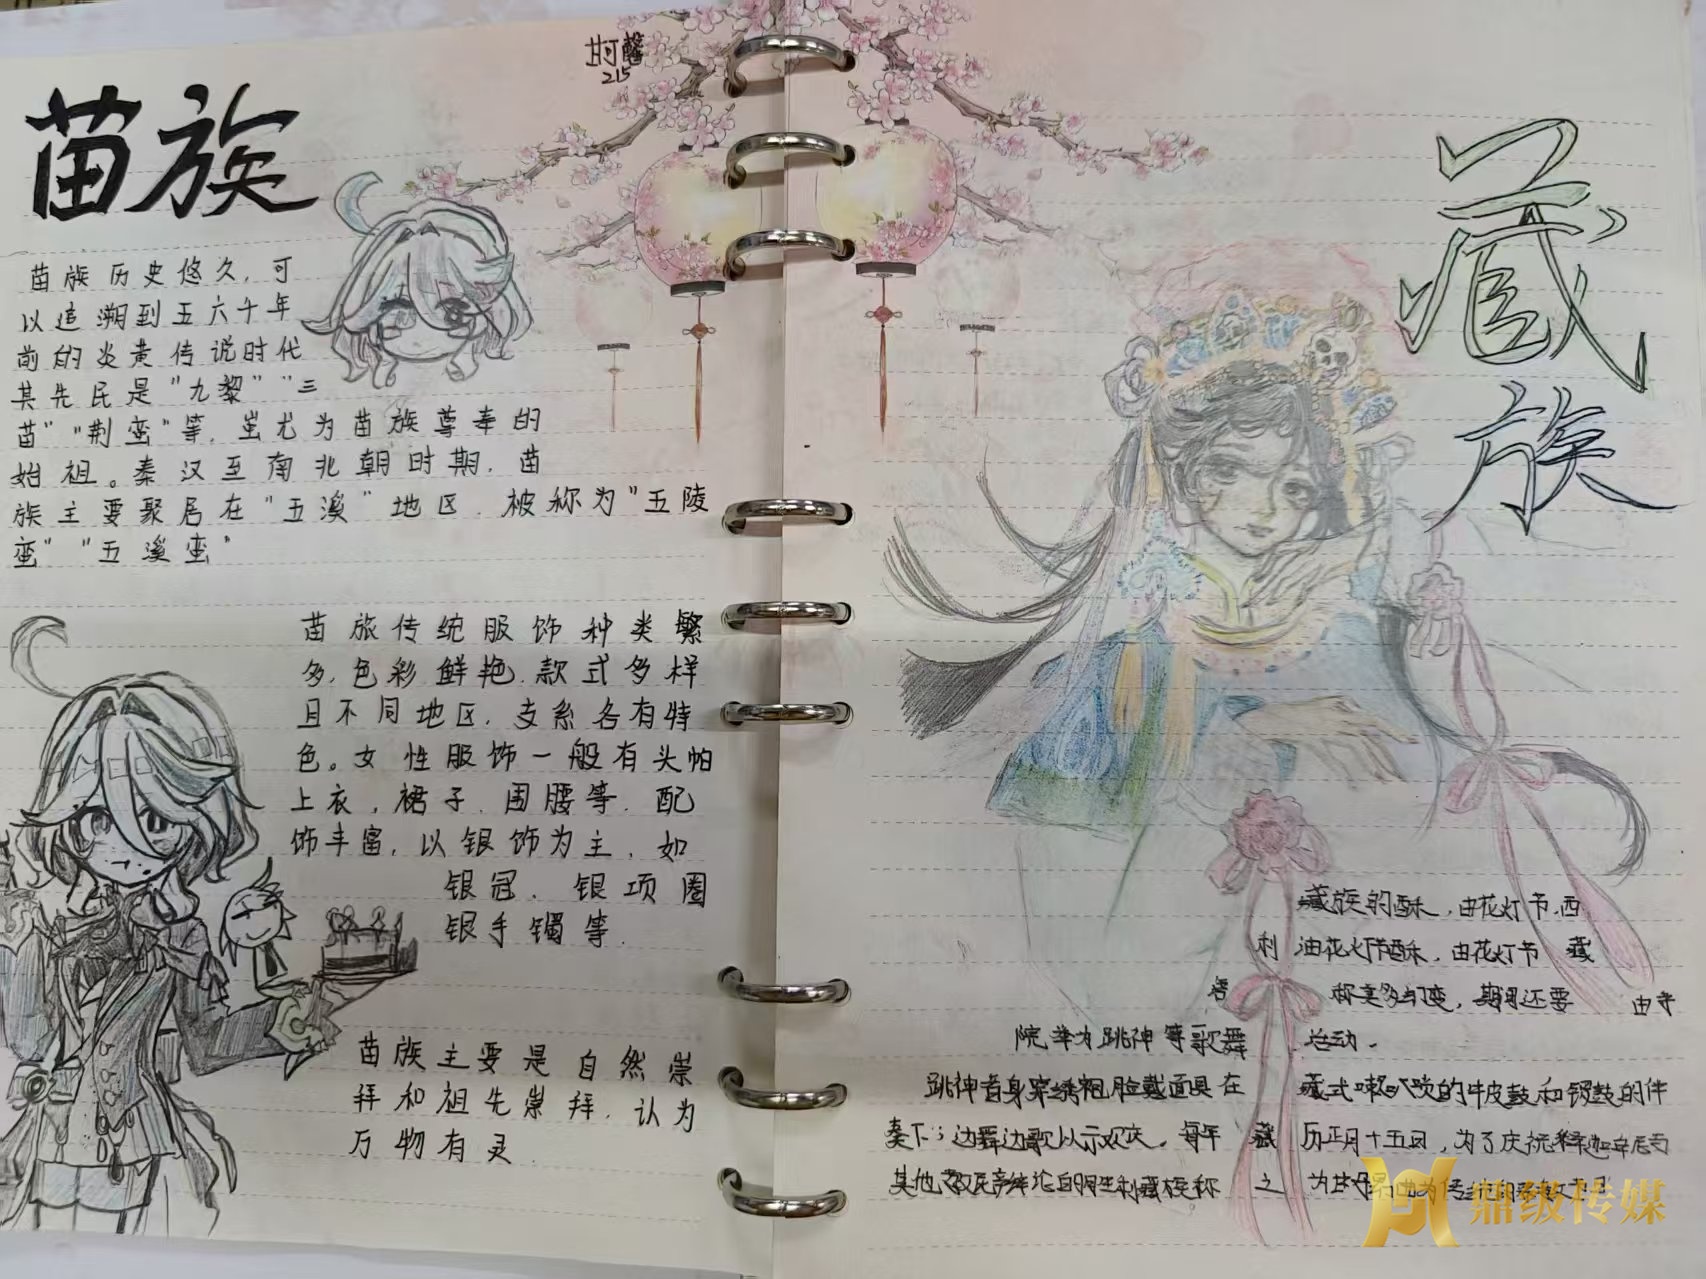 苗族
215
苗族历史悠久,可
以追溯到五六千年
前的炎黄传说时代
其先民是"九黎""三
苗""荆蛮"等,蚩尤为苗族尊奉的
始祖。秦汉至南北朝时期,苗
族主要聚居在"五溪"地区,被称为"五陵
蛮""五溪蛮"
苗族传统服饰种类繁
多,色彩鲜艳,款式多样
且不同地区,支系各有特
色。女性服饰一般有头帕
上衣,裙子,围腰等,配
饰丰富,以银饰为主,如
银冠,银项圈
银手镯等.
苗族主要是自然崇
拜和祖先崇拜,认为
万物有灵
藏族
藏族的酥,由花灯节,西
利 油花灯节酥,由花灯节 藏
期间还要
院举为跳神等歌舞 活动.
跳神者身穿绣袍脸戴面具在 藏式 的牛皮鼓和 鼓的伴
奏下;边舞边歌以示欢庆。每年 藏 历正月十五日,为了庆祝释迦牟尼
其他 之
鼎级传媒